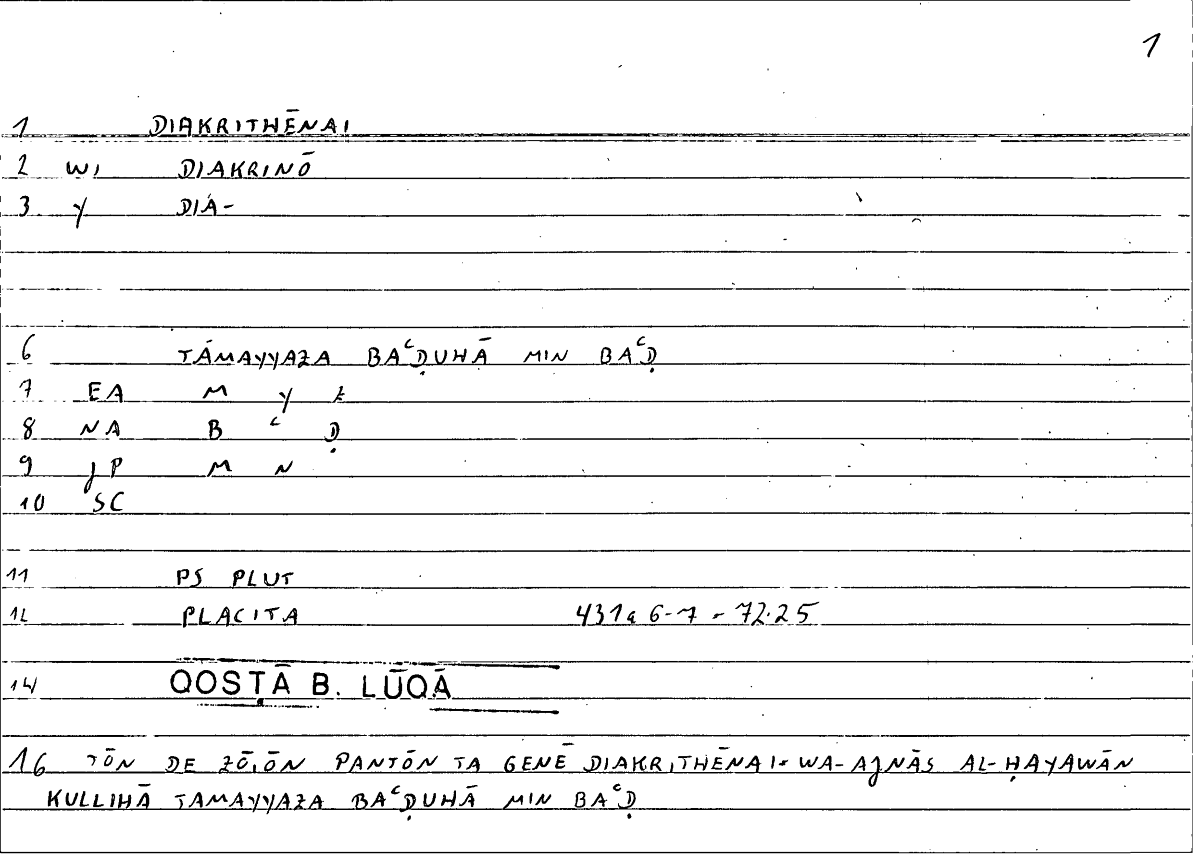 1
1 DIAKRITHĒNAI
2 WI DIAKRINŌ
3 Y DIA-
6 TAMAYYAZA BAʿḌUHĀ MIN BAʿḌ
7 EA M Y Z
8 NA B ʿ Ḍ
9 JP M N
10 SC
11 PS PLUT
12 PLACITA 431a 6-7 = 72.25
14 QOSṬĀ B. LŪQĀ
16 TŌN DE ZŌIŌN PANTŌN TA GENĒ DIAKRITHĒNAI = WA-AJNĀS AL-ḤAYAWĀN
KULLIHĀ TAMAYYAZA BAʿḌUHĀ MIN BAʿḌ